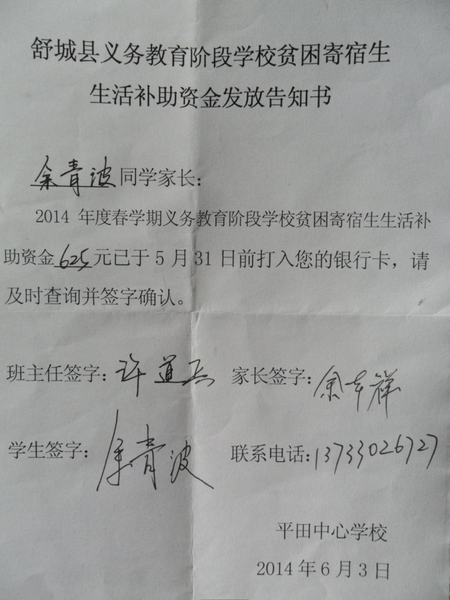 舒城县义务教育阶段学校贫困寄宿生
生活补助资金发放告知书
余青波同学家长:
2014 年度春学期义务教育阶段学校贫困寄宿生生活补
助资金 625 元已于 5 月 31 日前打入您的银行卡，请
及时查询并签字确认。
班主任签字: 许道兵 家长签字: 余本祥
学生签字: 余青波 联系电话: 13733026727
平田中心学校
2014 年 6 月 3 日